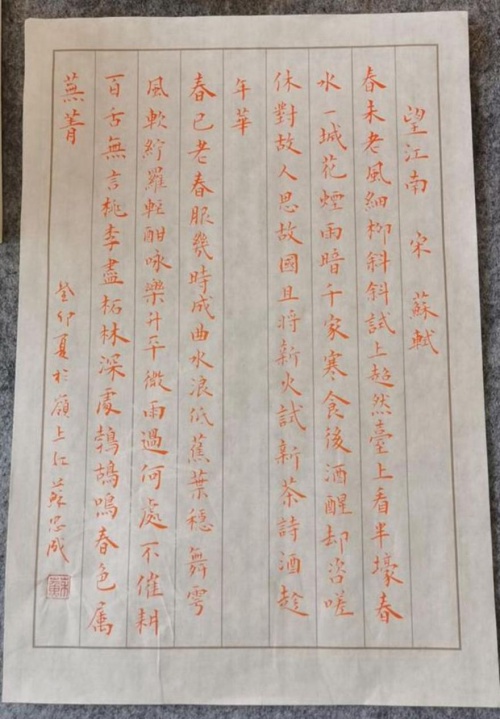 望江南 宋 蘇軾
春未老風細柳斜斜試上超然臺上看半壕春
水一城花煙雨暗千家寒食後酒醒却咨嗟
休對故人思故國且將新火試新茶詩酒趁
年華
春已老春服幾時成曲水浪低蕉葉穩舞雩
風軟紵羅輕酣咏樂升平微雨過何處不催耕
百舌無言桃李盡柘林深處鵓鴣鳴春色属
蕪菁
癸卯夏於嶺上江蘇忠成